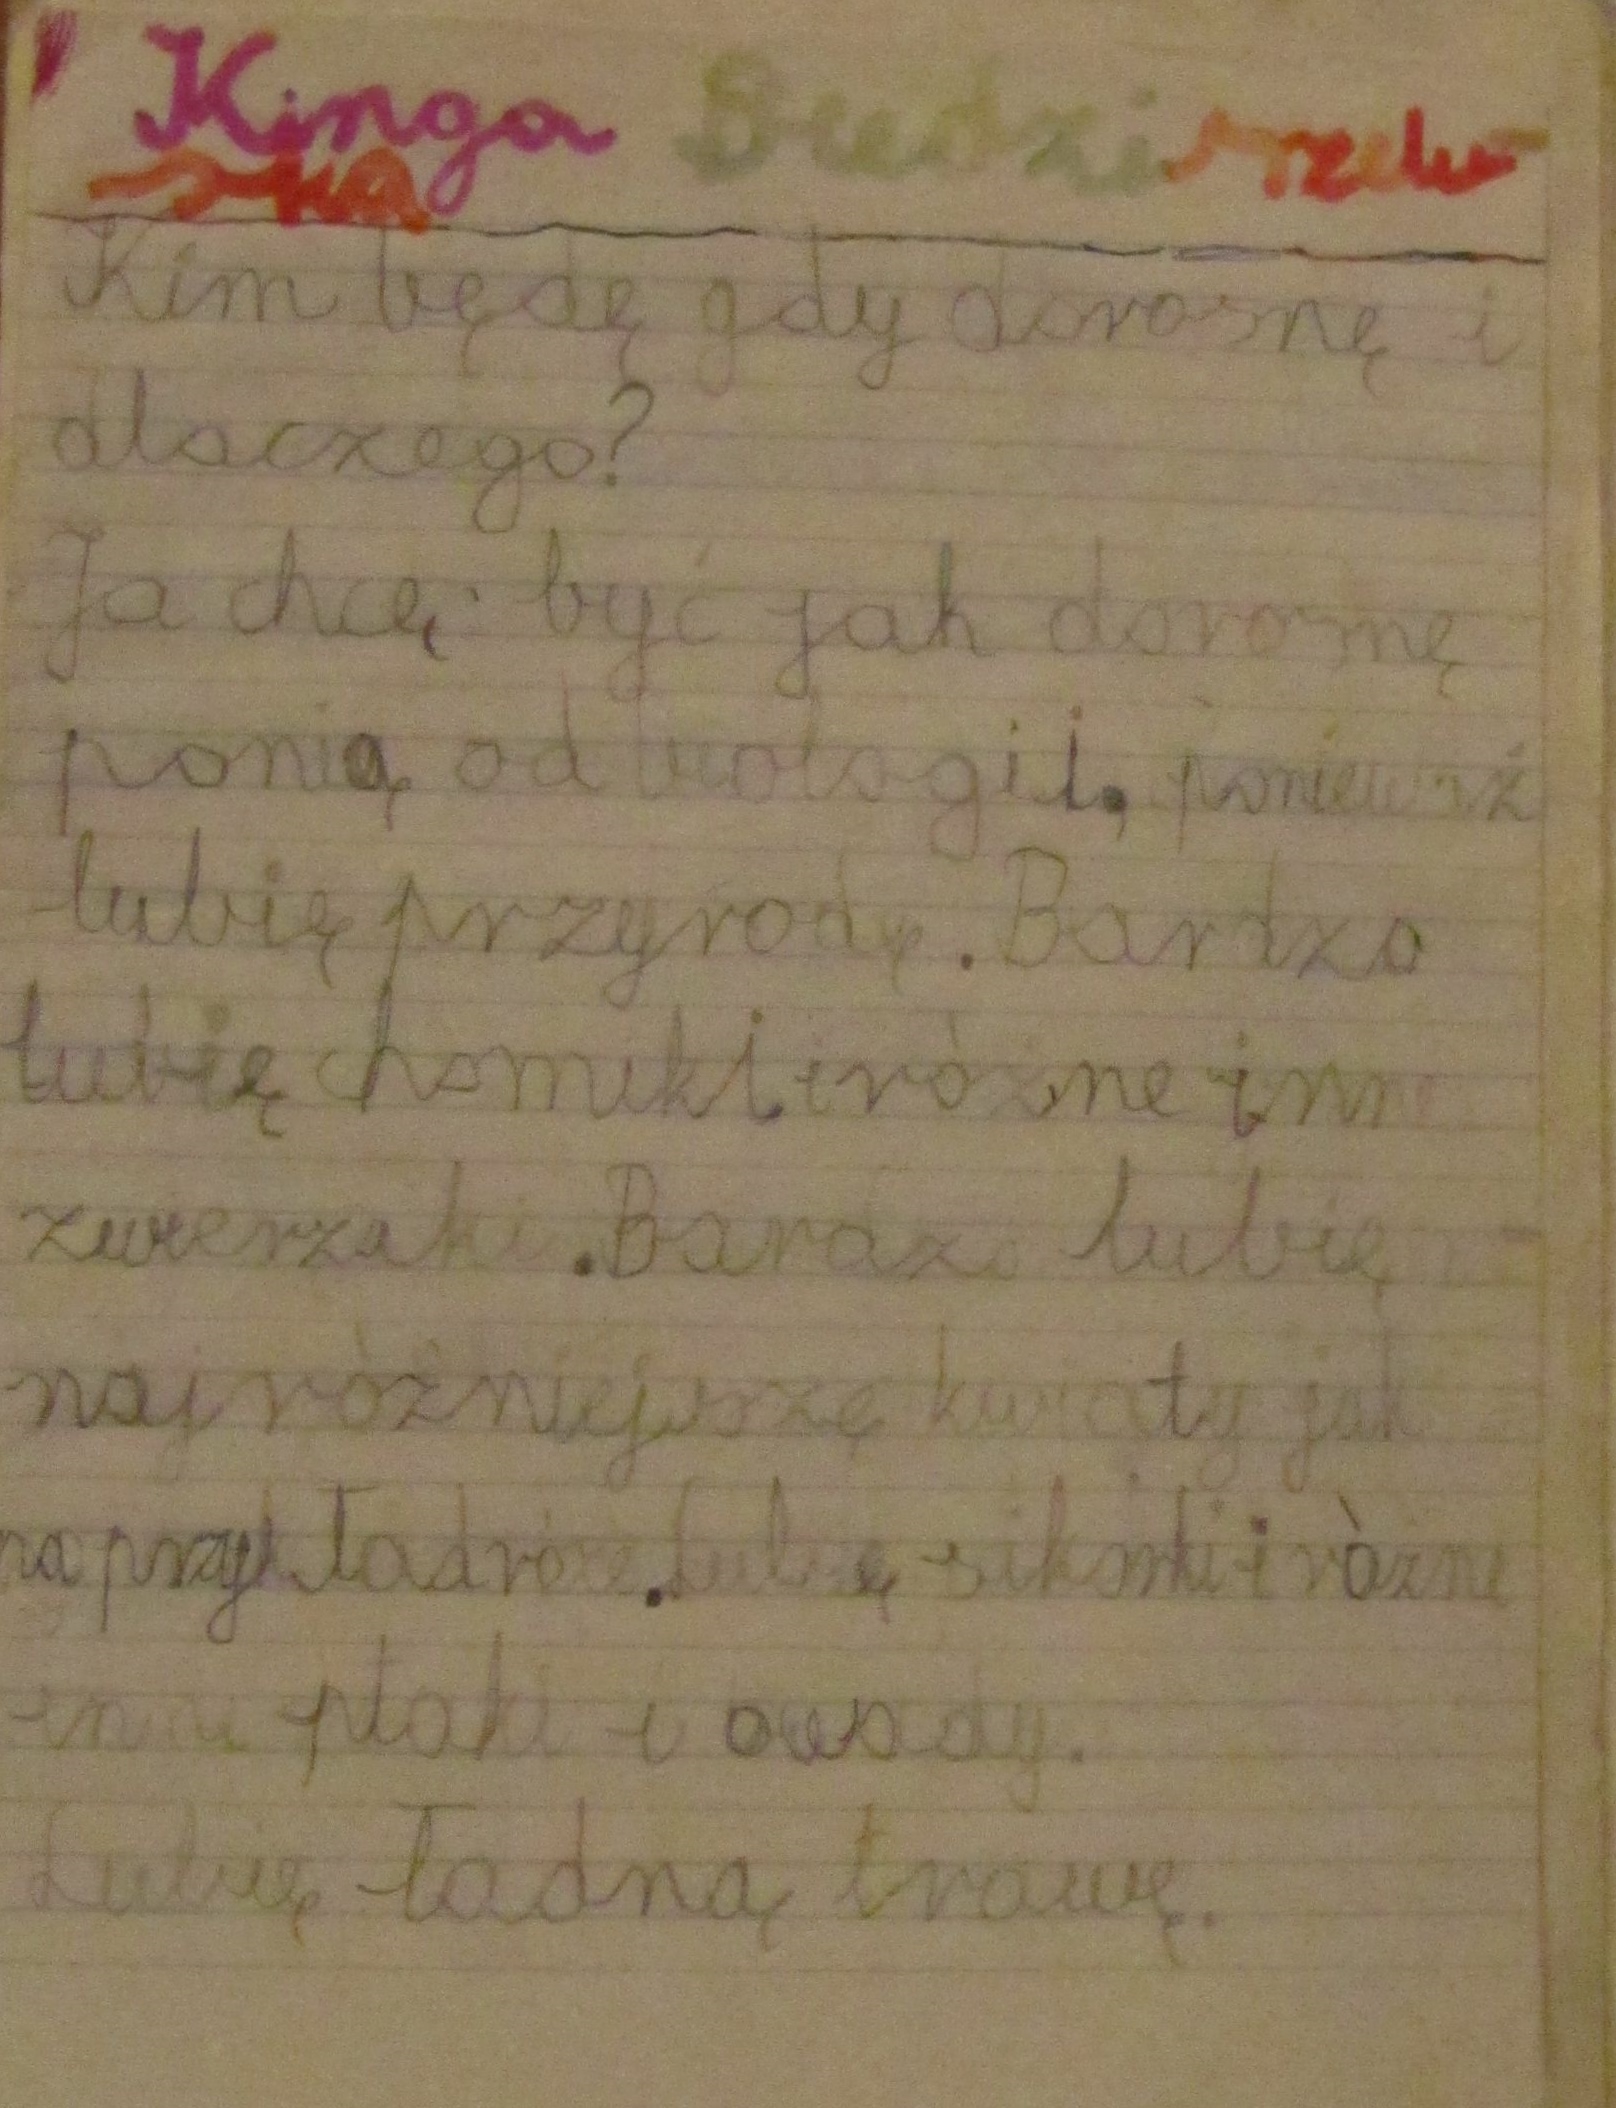 Kinga
ska
Kim będę gdy dorosnę i
dlaczego?
Ja chcę być jak dorosnę
panią od biologii, ponieważ
lubię przyrodę. Bardzo
lubię chomiki i różne inne
zwierzaki. Bardzo lubię
najróżniejszę kwiaty jak
na przykład róże. Lubię sikorki i różne
inne ptaki i owady.
Lubię ładną trawę.